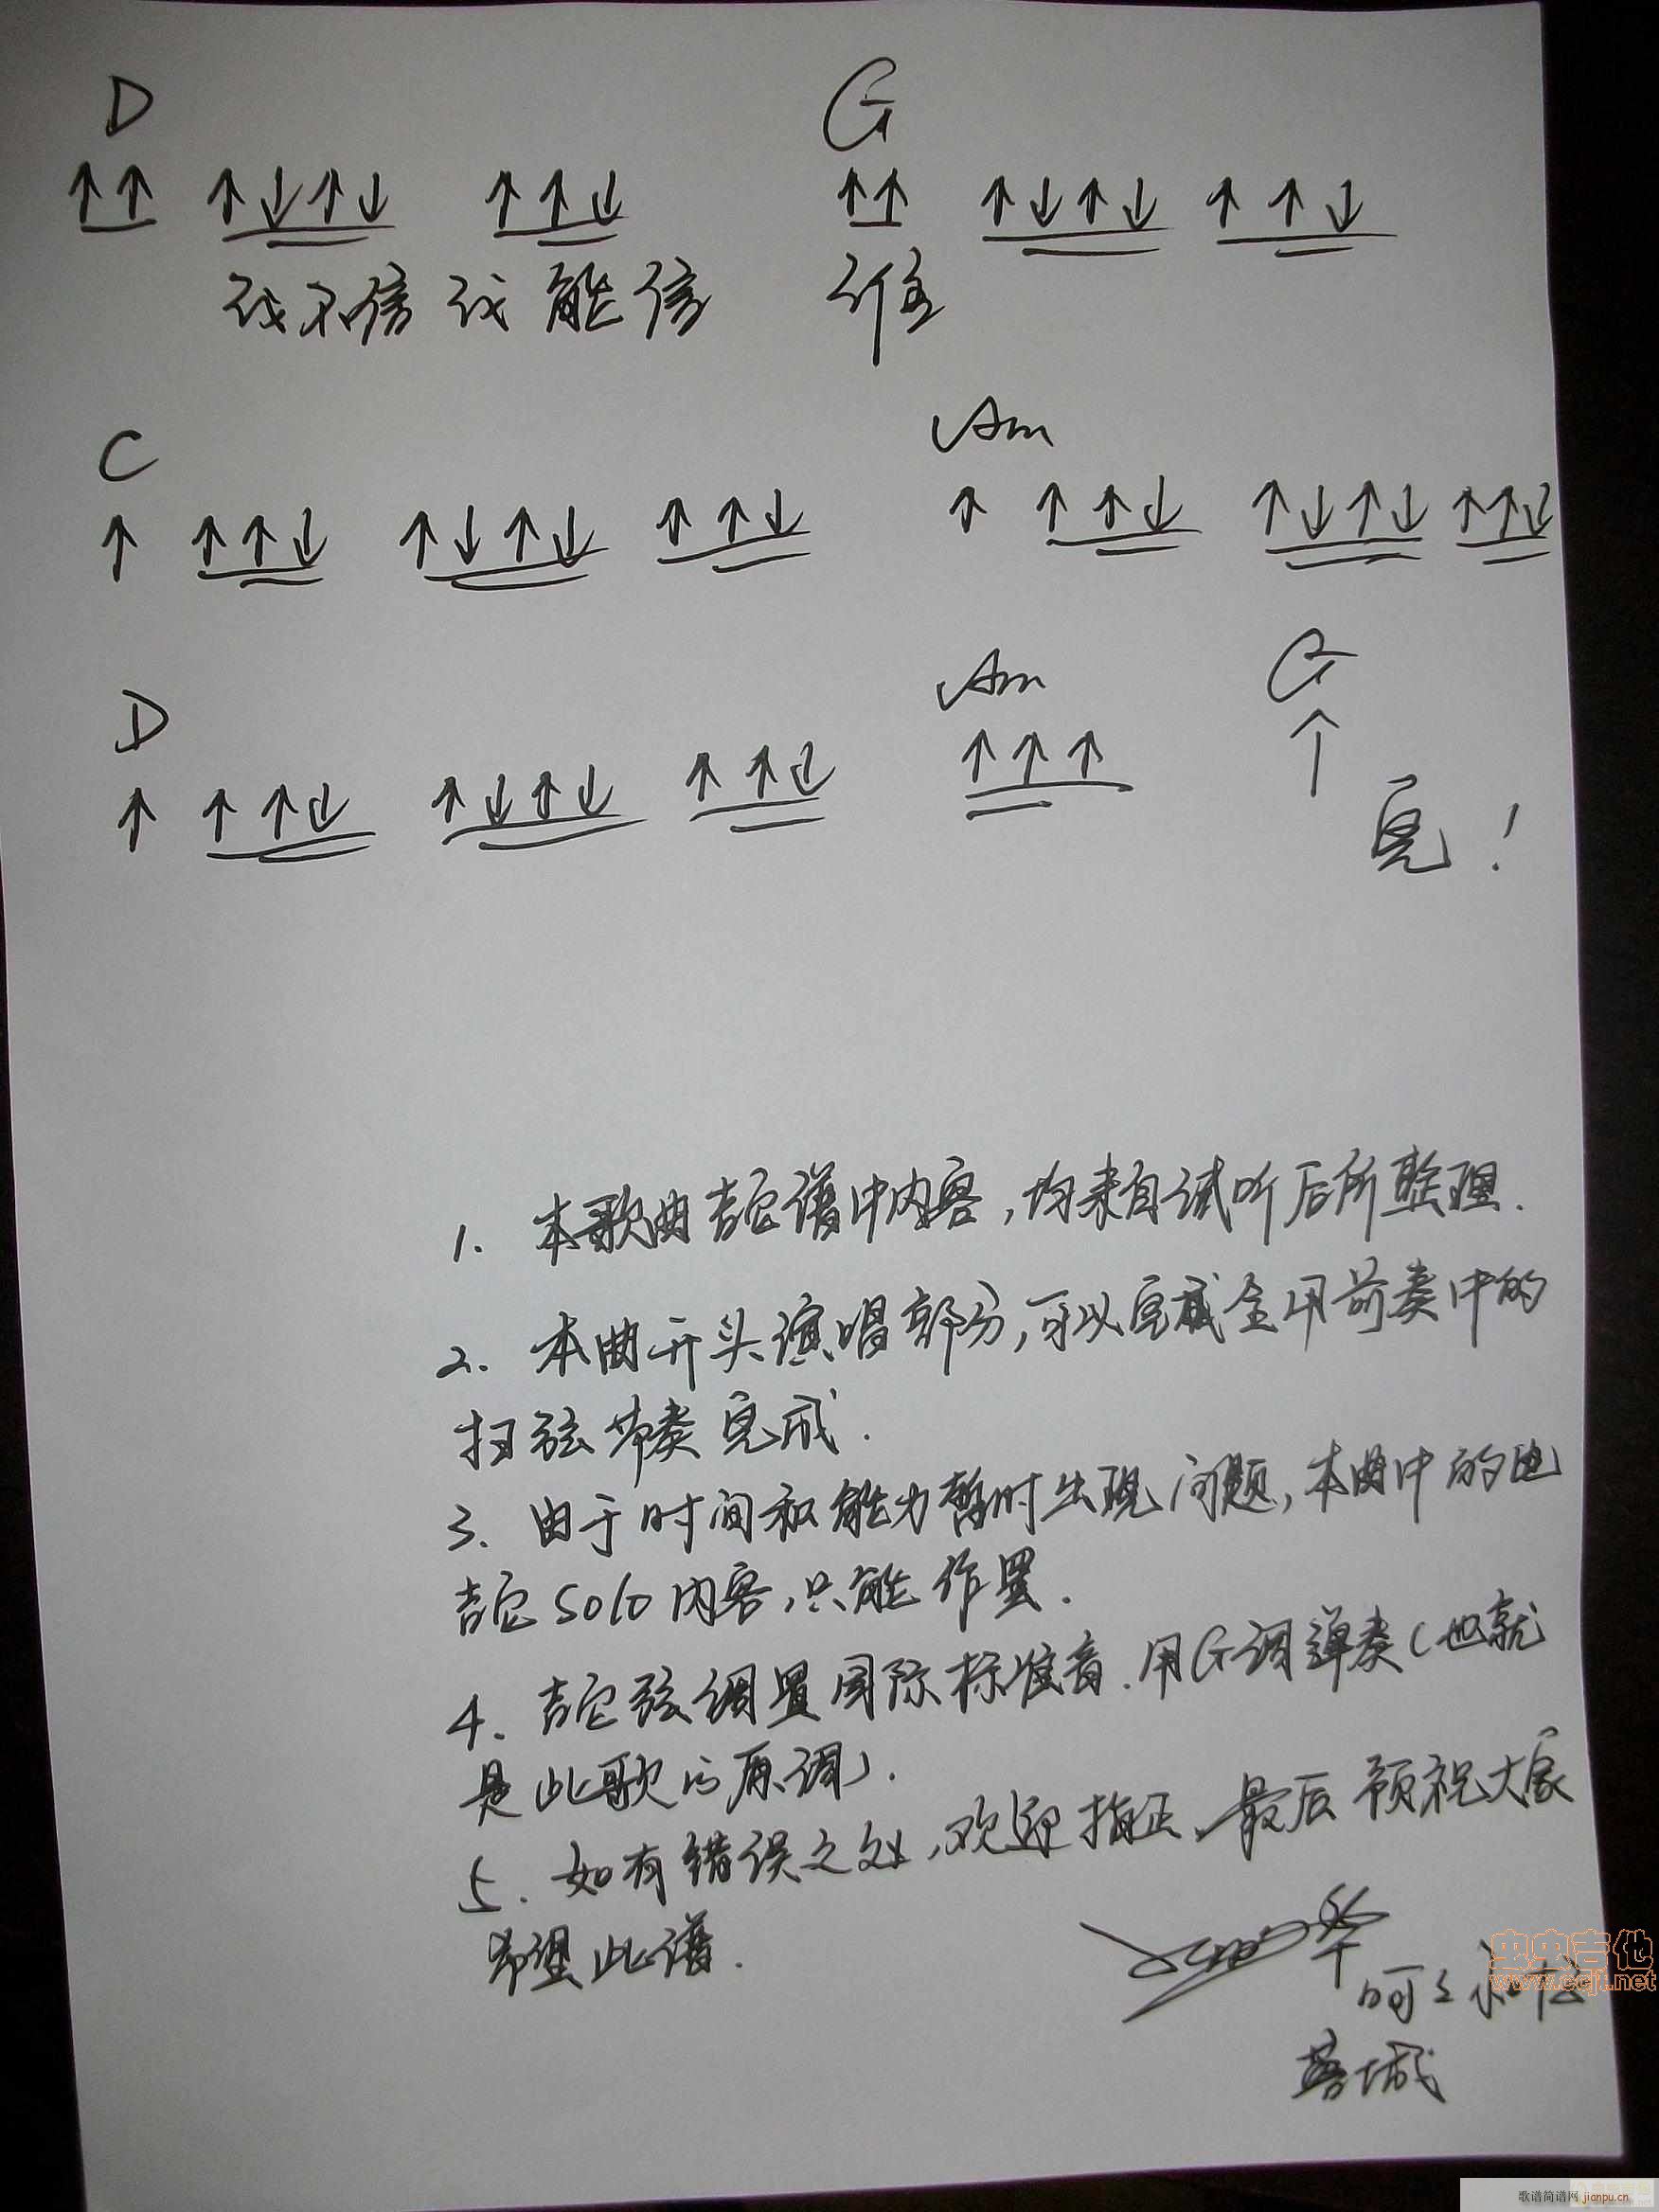 D G
↑↑ ↑↓↑↓ ↑↑↓ ↑↑ ↑↓↑↓ ↑↑↓
我不信我能信 谁
C Am
↑ ↑↑↓ ↑↓↑↓ ↑↑↓ ↑ ↑↑↓ ↑↓↑↓ ↑↑↓
D Am G
↑ ↑↑↓ ↑↓↑↓ ↑↑↓ ↑↑↑ ↑
完！
1. 本歌曲吉它谱中内容,均来自试听后所整理.
2. 本曲开头演唱部分,可以完成全用前奏中的
扫弦节奏完成.
3. 由于时间和能力暂时出现问题,本曲中的电
吉它solo内容,只能作罢.
4. 吉它弦调置国际标准音.用G调弹奏(也就
是此歌的原调).
5. 如有错误之处,欢迎指正、最后预祝大家
希望此谱.
华
蓉城
虫虫吉他
www.ccjt.net
歌谱简谱网 jianpu.cn